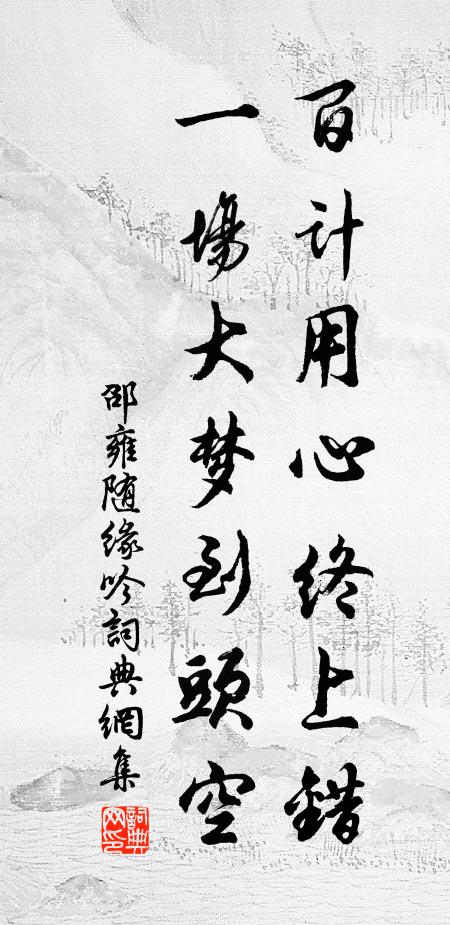 百计用心终上错
一場大梦到頭空
邵雍随缘吟詞典網集
詞典
网印